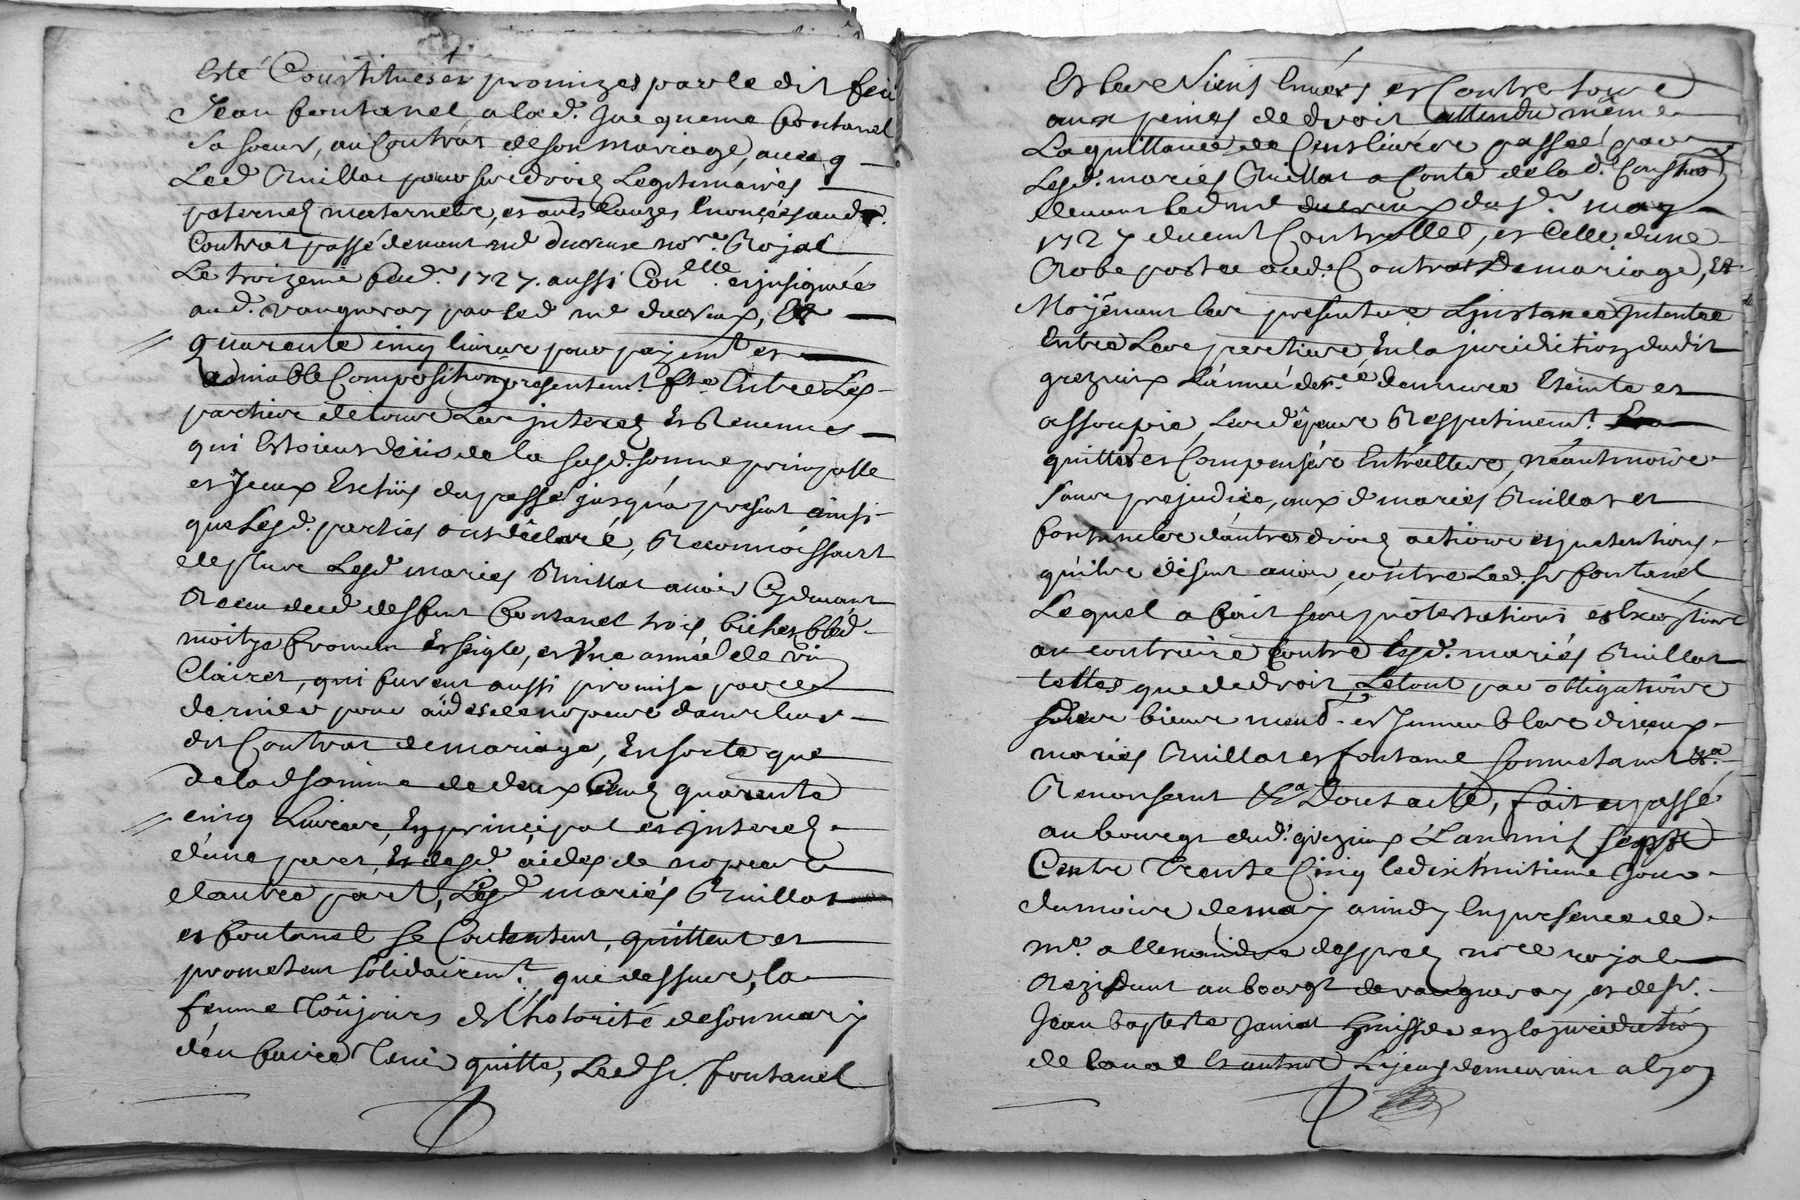 esté Constitués et promizes par le dit feu
Jean fontanel, a lad. Jacqueme fontanel
sa soeur, au Contrat de son mariage, avec
Led. Ruillat pour ses droiz Legitimaires
paternelz maternelz, et autres Cauzes enoncées aud.
Contrat passé devant me ducreux nore. Royal
Le troizieme feud. 1727. aussi Conellé. et insignué
aud. vaugneray par led me ducreux, Et
quarente cinq livres pour payemt et
admiable Composition presentemt fte. Entre Les
parties de tous Les interez Et Revenus
qui Estoient deus de la susd. somme principalle
et Jceux Escheus du passé jusqu'a present ainsi
que Lesd. parties ont déclaré, Reconnoissant
de plus Lesd mariés Ruillat avoir Cydevant
Receu dud deffunt fontanel trois bichez bléd
moitye froment Et seigle, et Une année de vin
Clairet, qui furent aussi promis par ce
dernier pour aides de nopces dans leur
dit Contrat de mariage, En sorte que
de lad somme de deux Cent quarente
cinq Livres, En principal et interez
d'une part, Et desd aides de nopces
d'autre part, Lesd mariés Ruillat
et fontanel se Contentent, quittent et
promettent solidairemt. que dessus, la
femme Toûjours de L'hotorité de son mary
d'en faire Tenir quitte, Led sr. fontanel
Et les siens Envers et Contre tous
aux peines de droit attendu même
La quittance de Cens livres passée par
Lesd. mariés Ruillat a Conte de lad. Constitu
devant led me ducreux du may
1727 duemt Controllée, et Celle d'une
Robe portée aud. Contrat De mariage, Et
Moyénant les presentes L'instance Jntentée
Entre Les parties En la juridiction dudit
grezieux L'année dere demeure Eteinte et
assoupie, Les dépens Respectivemt.
quittes et Compensés Entreelles, néantmoins
sans prejudice, aux d mariés Ruillat et
fontanel d'autres droiz actions et pretentions
qu'ils disent avoir contre Led. sr fontanel
Lequel a fait ses protestations et Exceptions
au contraire Contre lesd. mariés Ruillat
telles que de droit, Le tout par obligations
de leurs biens meub. et Jmmeubles diceux
mariés Ruillat et fontanel soumetant &a.
Renonssant &a Dont acte, fait et passé
au bourg dud. grezieux L'an mil sept
Cents Trente Cinq le dixhuitieme jour
du mois de may a midy En presence de
me. allexandre desprez nore royal
Rezidant au bourgt de vaugneray, et de sr.
Jean baptiste Janiat huissier en la juridiction
de laval Et autres Lieux demeurant a lyon